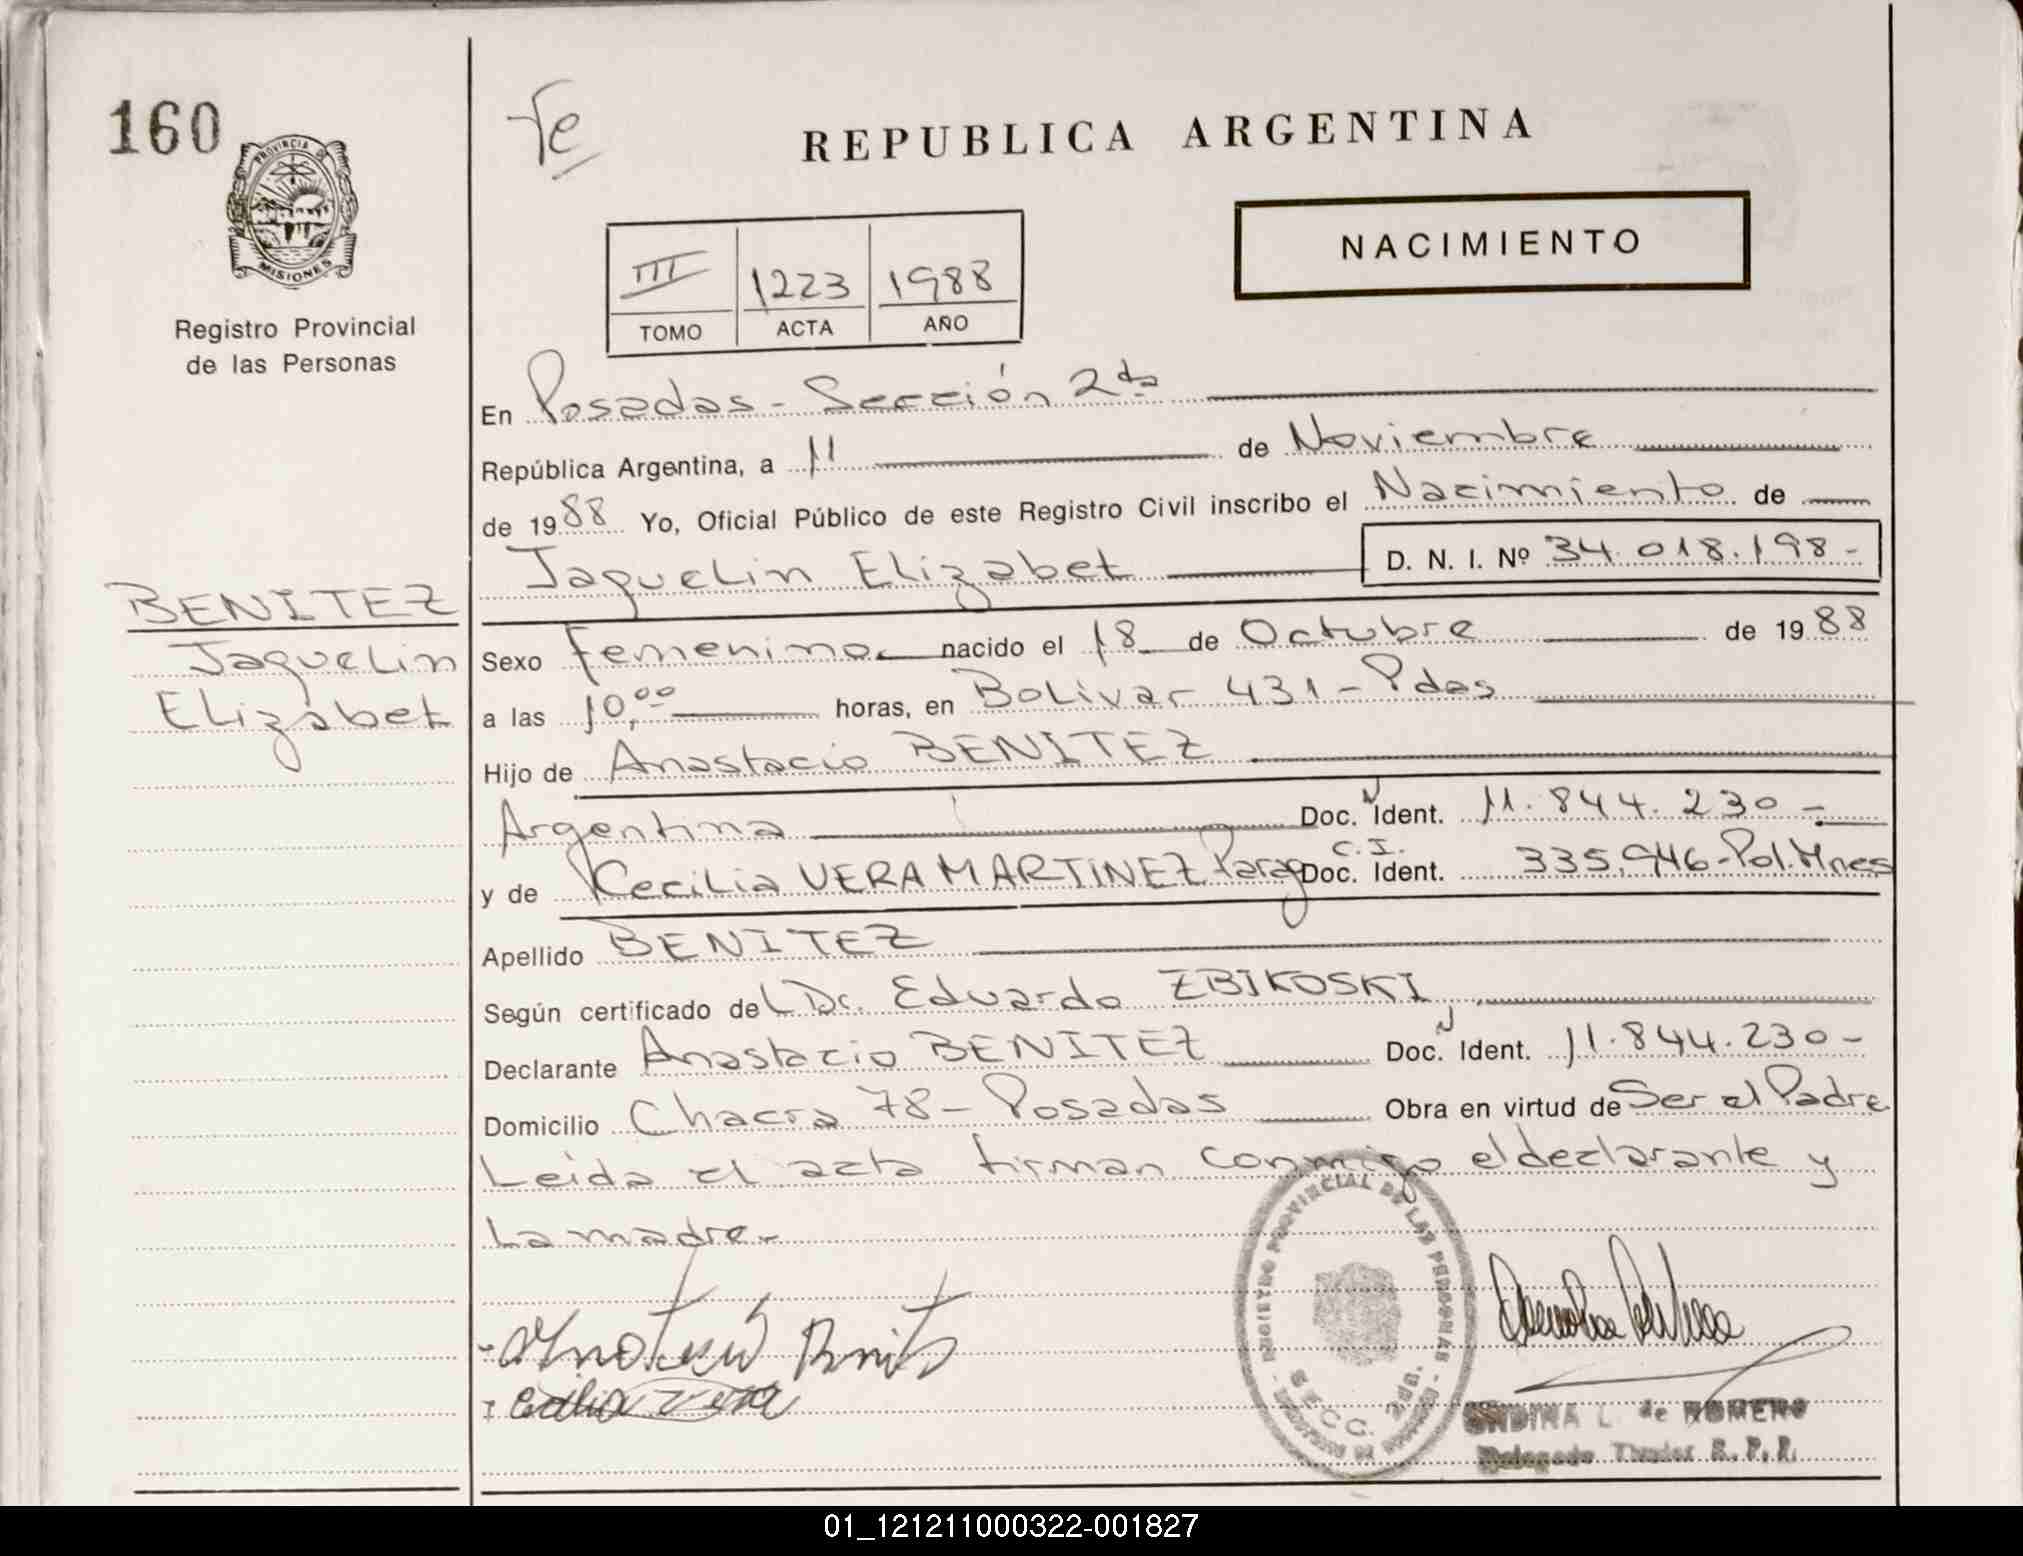 160
Fe
REPUBLICA ARGENTINA
PROVINCIA DE
MISIONES
Registro Provincial
de las Personas
NACIMIENTO
III 1223 1988
TOMO ACTA AÑO
En Posadas - Sección 2da
República Argentina, a 11 de Noviembre
de 1988 Yo, Oficial Público de este Registro Civil inscribo el Nacimiento de
Jaquelin Elizabet D. N. I. Nº 34.018.198-
BENITEZ
Jaquelin
Elizabet
Sexo femenino nacido el 18 de Octubre de 1988
a las 10,00 horas, en Bolivar 431 - Pdas
Hijo de Anastacio BENITEZ
Argentina Doc. N Ident. 11.844.230-
y de Cecilia VERA MARTINEZ Parag Doc. C.I. Ident. 335.946-Pol.Mnes
Apellido BENITEZ
Según certificado del Dr. Eduardo ZBIKOSKI
Declarante Anastacio BENITEZ Doc. N Ident. 11.844.230-
Domicilio Chacra 78 - Posadas Obra en virtud de Ser el Padre
Leida el acta firman conmigo el declarante y
La madre.-
REGISTRO PROVINCIAL DE LAS PERSONAS
SECC. 2da.
ONDINA L. de ROMERO
Delegado Titular R. P. P.
01_121211000322-001827